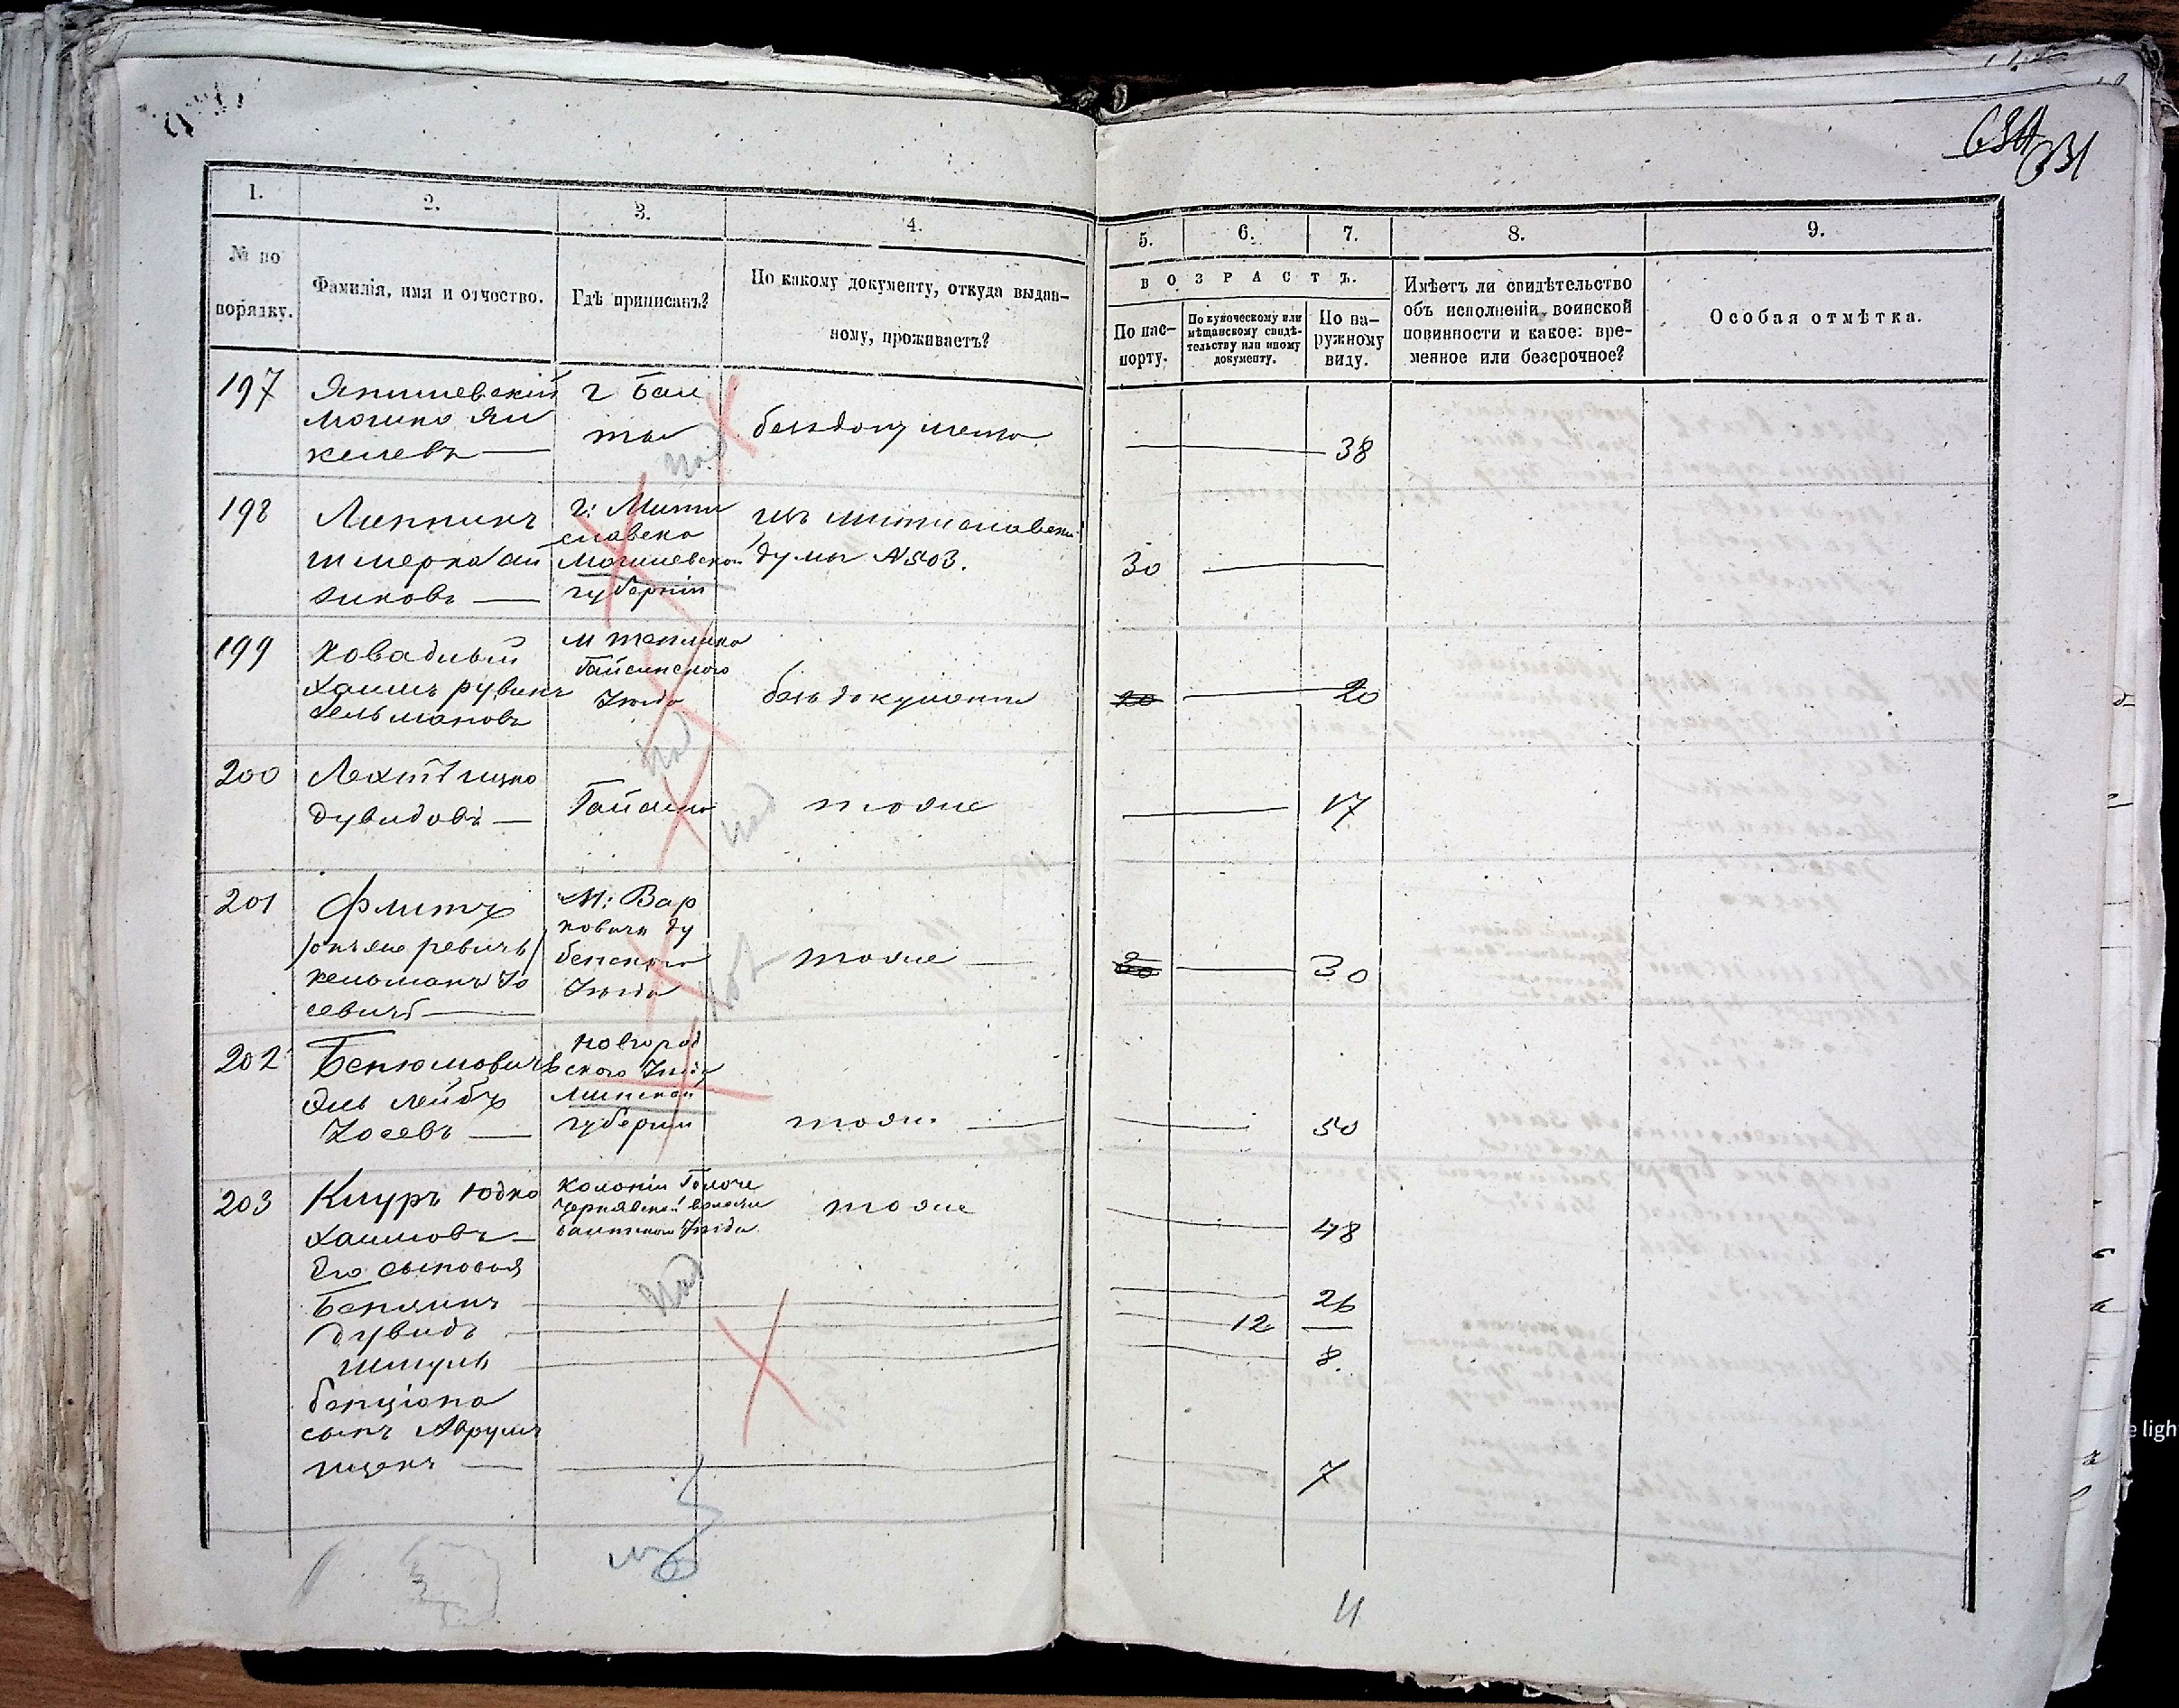 631
1.
2.
3.
4.
5.
6.
7.
8.
9.
№ по
порядку.
Фамилія, имя и отчество.
Гдѣ приписанъ?
По какому документу, откуда выдан-
ному, проживаетъ?
ВОЗРАСТЪ.
По пас-
порту.
По купеческому или
мѣщанскому свидѣ-
тельству или иному
документу.
По на-
ружному
виду.
Имѣетъ ли свидѣтельство
объ исполненіи воинской
повинности и какое: вре-
менное или безсрочное?
Особая отмѣтка.
197
Мошко Ян
келевъ
г Бал
ты
безъ документа
38
198
Липкинъ
Шмерка Ай
зиковъ
г: Мсти
славска
Могилевской
губерніи
изъ Мстиславской
думы №503.
30
199
Ховадный
Хаимъ рувинъ
Зельмановъ
м Теплика
Гайсинского
Уѣзда
безъ документа
20
20
200
Ицко
Дувидовъ
Гайсина
тоже
17
201
Флитъ
/онъ же ревичъ/
Кельманъ Іо
севичъ
М: Вар
ковичи Ду
бенского
Уѣзда
тоже
30
30
202
Бенюмовичъ
Эль Лейбъ
Іосевъ
Новгород
ского Уѣзда
Минской
губерніи
тоже
50
203
Кнуръ Юдко
Хаимовъ
Его сыновья
Бенціонъ
Дувидъ
Шмуль
Бенціона
сынъ Аврумъ
Ицекъ
Колоніи
волости
Балтского Уѣзда
тоже
48
26
12
8
7
11